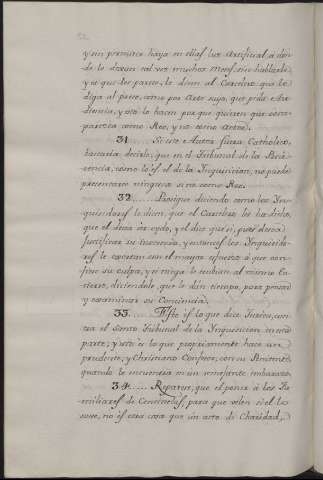 y sin permitir haya en ellas luz artificial, à don-
de le tienen tal vez muchos meses sin hablarle,
y si que les parece, le dicen al Carcelero que le
diga al preso, como por acto suyo, que pida Au-
diencia, y esto lo hacen porque quieren que com-
parezca como Reo, y no como Actor.
31...... Si este Autor fuera Catholico,
bastaria decirle, que en el Tribunal de la Peni-
tencia, como lo es el de la Inquisicion, no puede
presentarse ninguno si no como Reo.
32...... Prosigue diciendo como los In-
quisidores le dicen, que el Carcelero les ha dicho,
que el desea ser oydo, y el dice que si, pues desea
justificar su inocencia, y entonces los Inquisido-
res le exortan con el mayor afecto à que con-
fiese su culpa, y si niega le embian al mismo Ca-
labozo, diciendole, que le dan tiempo, para pensar
y examinar su Conciencia.
33...... Esto es lo que dice Juicios, con-
tra el Santo Tribunal de la Inquisicion en esta
parte; y esto es lo que propriamente hace un
prudente, y Christiano Confesor, con su Penitente,
quando le encuentra en un semejante embarazo.
34...... Reparar, que el poner à los Fa-
miliares de Centinelas, para que velen si el los
suyo, no es otra cosa que un acto de Charidad,